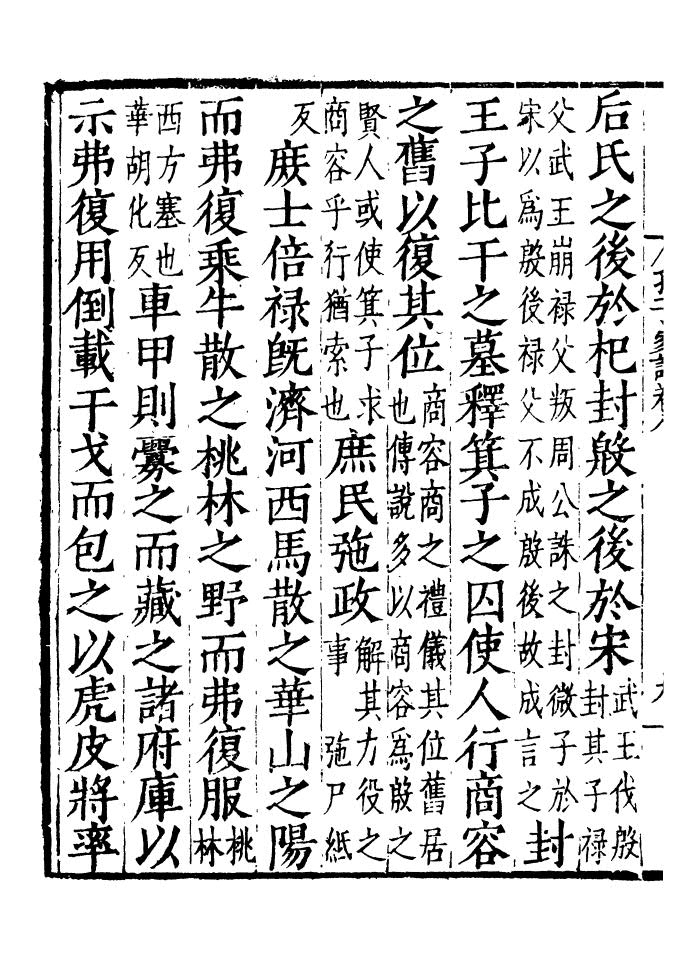 后氏之後於杞封殷之後於宋武王伐殷封其子祿
父武王崩祿父叛周公誅之封微子於宋以爲殷後祿父不成殷後故成言之封
王子比干之墓釋箕子之囚使人行商容
之舊以復其位商容商之禮儀其位舊居也傳說多以商容爲殷之
賢人或使箕子求商容乎行猶索也庶民弛政解其力役之事 弛尸紙
反庶士倍祿既濟河西馬散之華山之陽
而弗復乘牛散之桃林之野而弗復服桃林
西方塞也華胡化反車甲則釁之而藏之諸府庫以
示弗復用倒載干戈而包之以虎皮將率